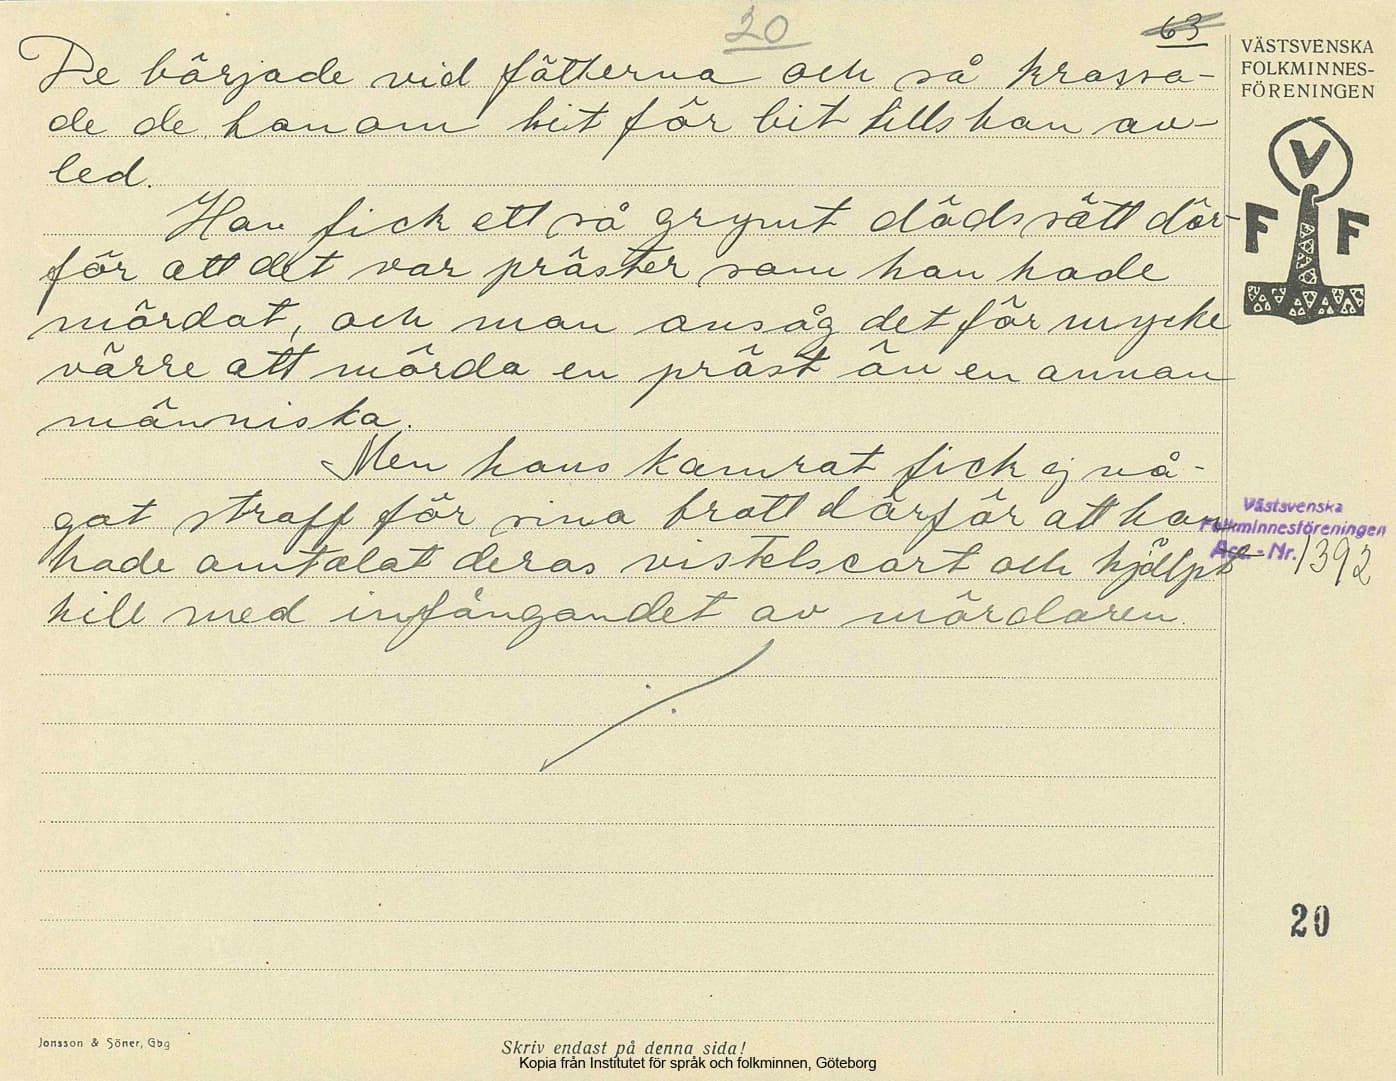 20
63
VÄSTSVENSKA
FOLKMINNES-
FÖRENINGEN
De började vid fötterna och så krossa-
de de honom bit för bit tills han av-
led.
Han fick ett så grymt dödssätt där-
för att det var präster som han hade
mördat, och man ansåg det för mycke
värre att mörda en präst än en annan
människa.
Men hans kamrat fick ej nå-
got straff för sina brott därför att han
hade omtalat deras vistelseort och hjälpt
till med infångandet av mördaren.
V
F F
Västsvenska
Folkminnesföreningen
Acc.-Nr. 1392
20
Jonsson & Söner, Gbg
Skriv endast på denna sida!
Kopia från Institutet för språk och folkminnen, Göteborg